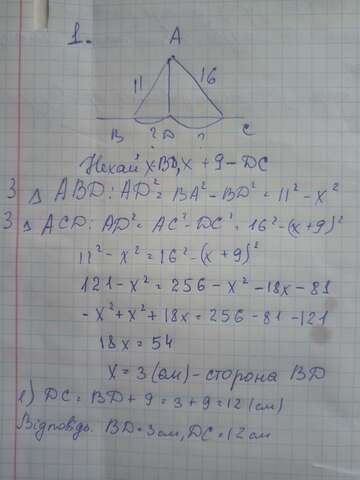 1.
A
11 16
B ? D ? C
Нехай х BD, х + 9 - DC
З △ ABD: AD² = BA² - BD² = 11² - x²
З △ ACD: AD² = AC² - DC² = 16² - (x+9)²
11² - x² = 16² - (x+9)²
121 - x² = 256 - x² - 18x - 81
-x² + x² + 18x = 256 - 81 - 121
18x = 54
x = 3 (см) - сторона BD
DC = BD + 9 = 3 + 9 = 12 (см)
Відповідь. BD = 3 см, DC = 12 см